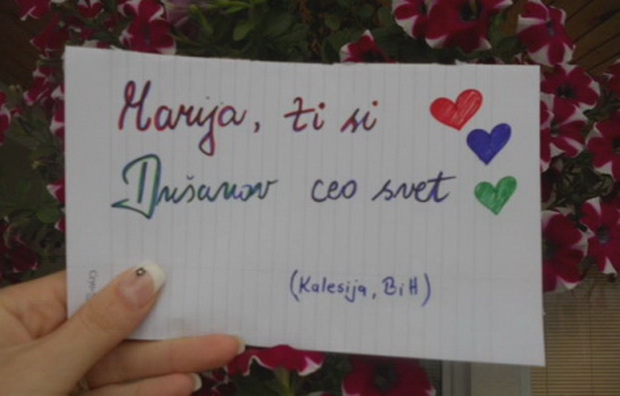 Marija, ti si
Dušanov ceo svet
(Kalesija, BiH)